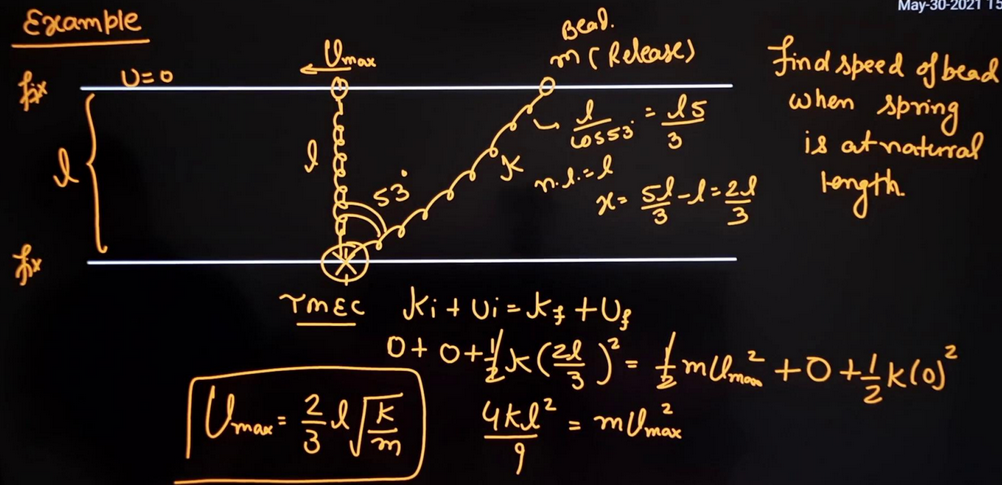 May-30-2021 15
Example
fix
U=0
l
fix
Vmax
l
53°
Bead.
m (Release)
l/cos53° = l5/3
K
n.l.=l
x= 5l/3 - l = 2l/3
find speed of bead
when spring
is at natural
length.
TMEC
Ki + Ui = Kf + Uf
0 + 0 + 1/2 K (2l/3)² = 1/2 mVmax² + 0 + 1/2 K(0)²
4Kl²/9 = mVmax²
Vmax = 2/3 l √K/m